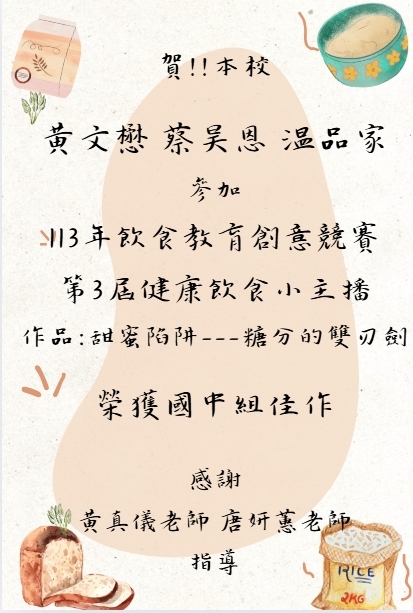 賀!!本校
黃文懋 蔡昊恩 溫品家
參加
113年飲食教育創意競賽
第3屆健康飲食小主播
作品:甜蜜陷阱---糖分的雙刃劍
榮獲國中組佳作
感謝
黃真儀老師 唐妍蕙老師
指導
RICE
2KG